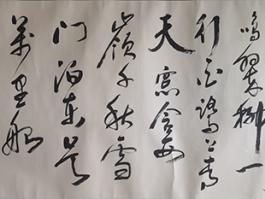 鸣翠柳一
行白鹭上青
天窗含西
岭千秋雪
门泊东吴
万里船